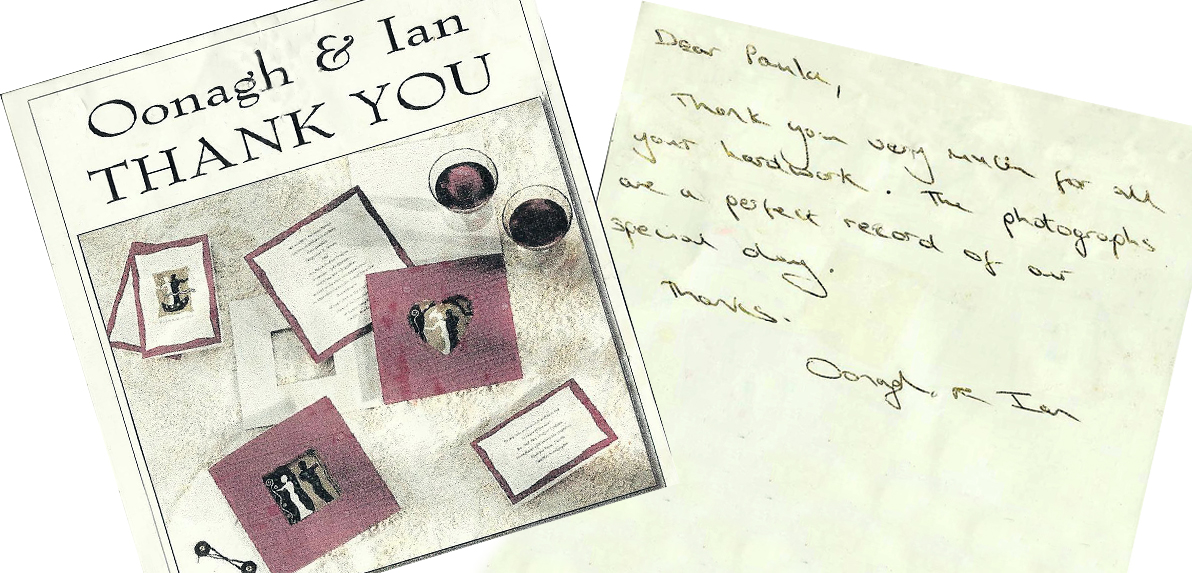 Oonagh & Ian
THANK YOU
Dear Paula,
Thank you very much for all
your hardwork. The photographs
are a perfect record of our
special day.
Thanks.
Oonagh & Ian